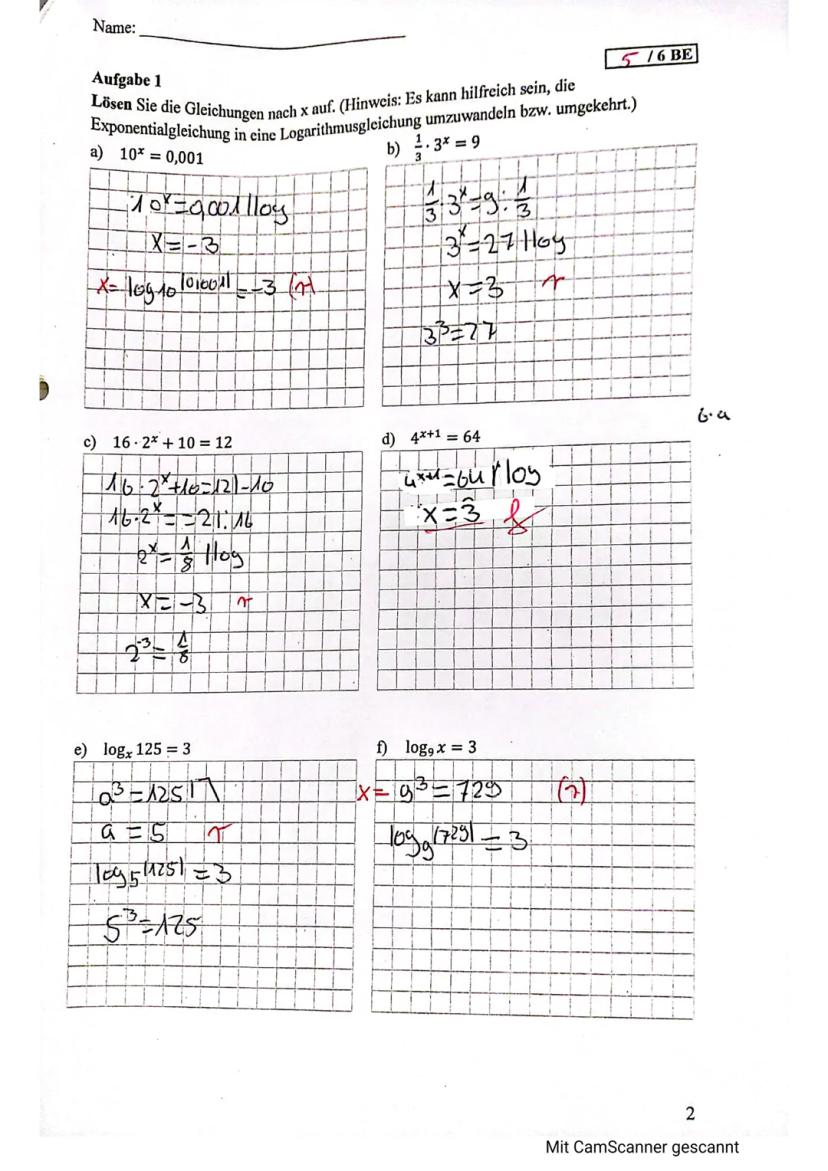 Name:
5 / 6 BE
Aufgabe 1
Lösen Sie die Gleichungen nach x auf. (Hinweis: Es kann hilfreich sein, die
Exponentialgleichung in eine Logarithmusgleichung umzuwandeln bzw. umgekehrt.)
a) 10ˣ = 0,001
10ˣ=0,001 | log
x = -3
x= log₁₀(0,001) = -3 (r)
b) 1/3 · 3ˣ = 9
1/3 3ˣ=9 : 1/3
3ˣ=27 | log
x = 3 r
3³=27
c) 16 · 2ˣ + 10 = 12
16 · 2ˣ+10=12 |-10
16·2ˣ = =2 |: 16
2ˣ = 1/8 | log
x = -3 r
2⁻³ = 1/8
d) 4ˣ⁺¹ = 64
4ˣ⁺¹=64 | log
x = 3 f
e) logₓ 125 = 3
a³=125 | √
a = 5 r
log₅(125) = 3
5³=125
f) log₉ x = 3
x= 9³ = 729 (r)
log₉(729) = 3
2
Mit CamScanner gescannt